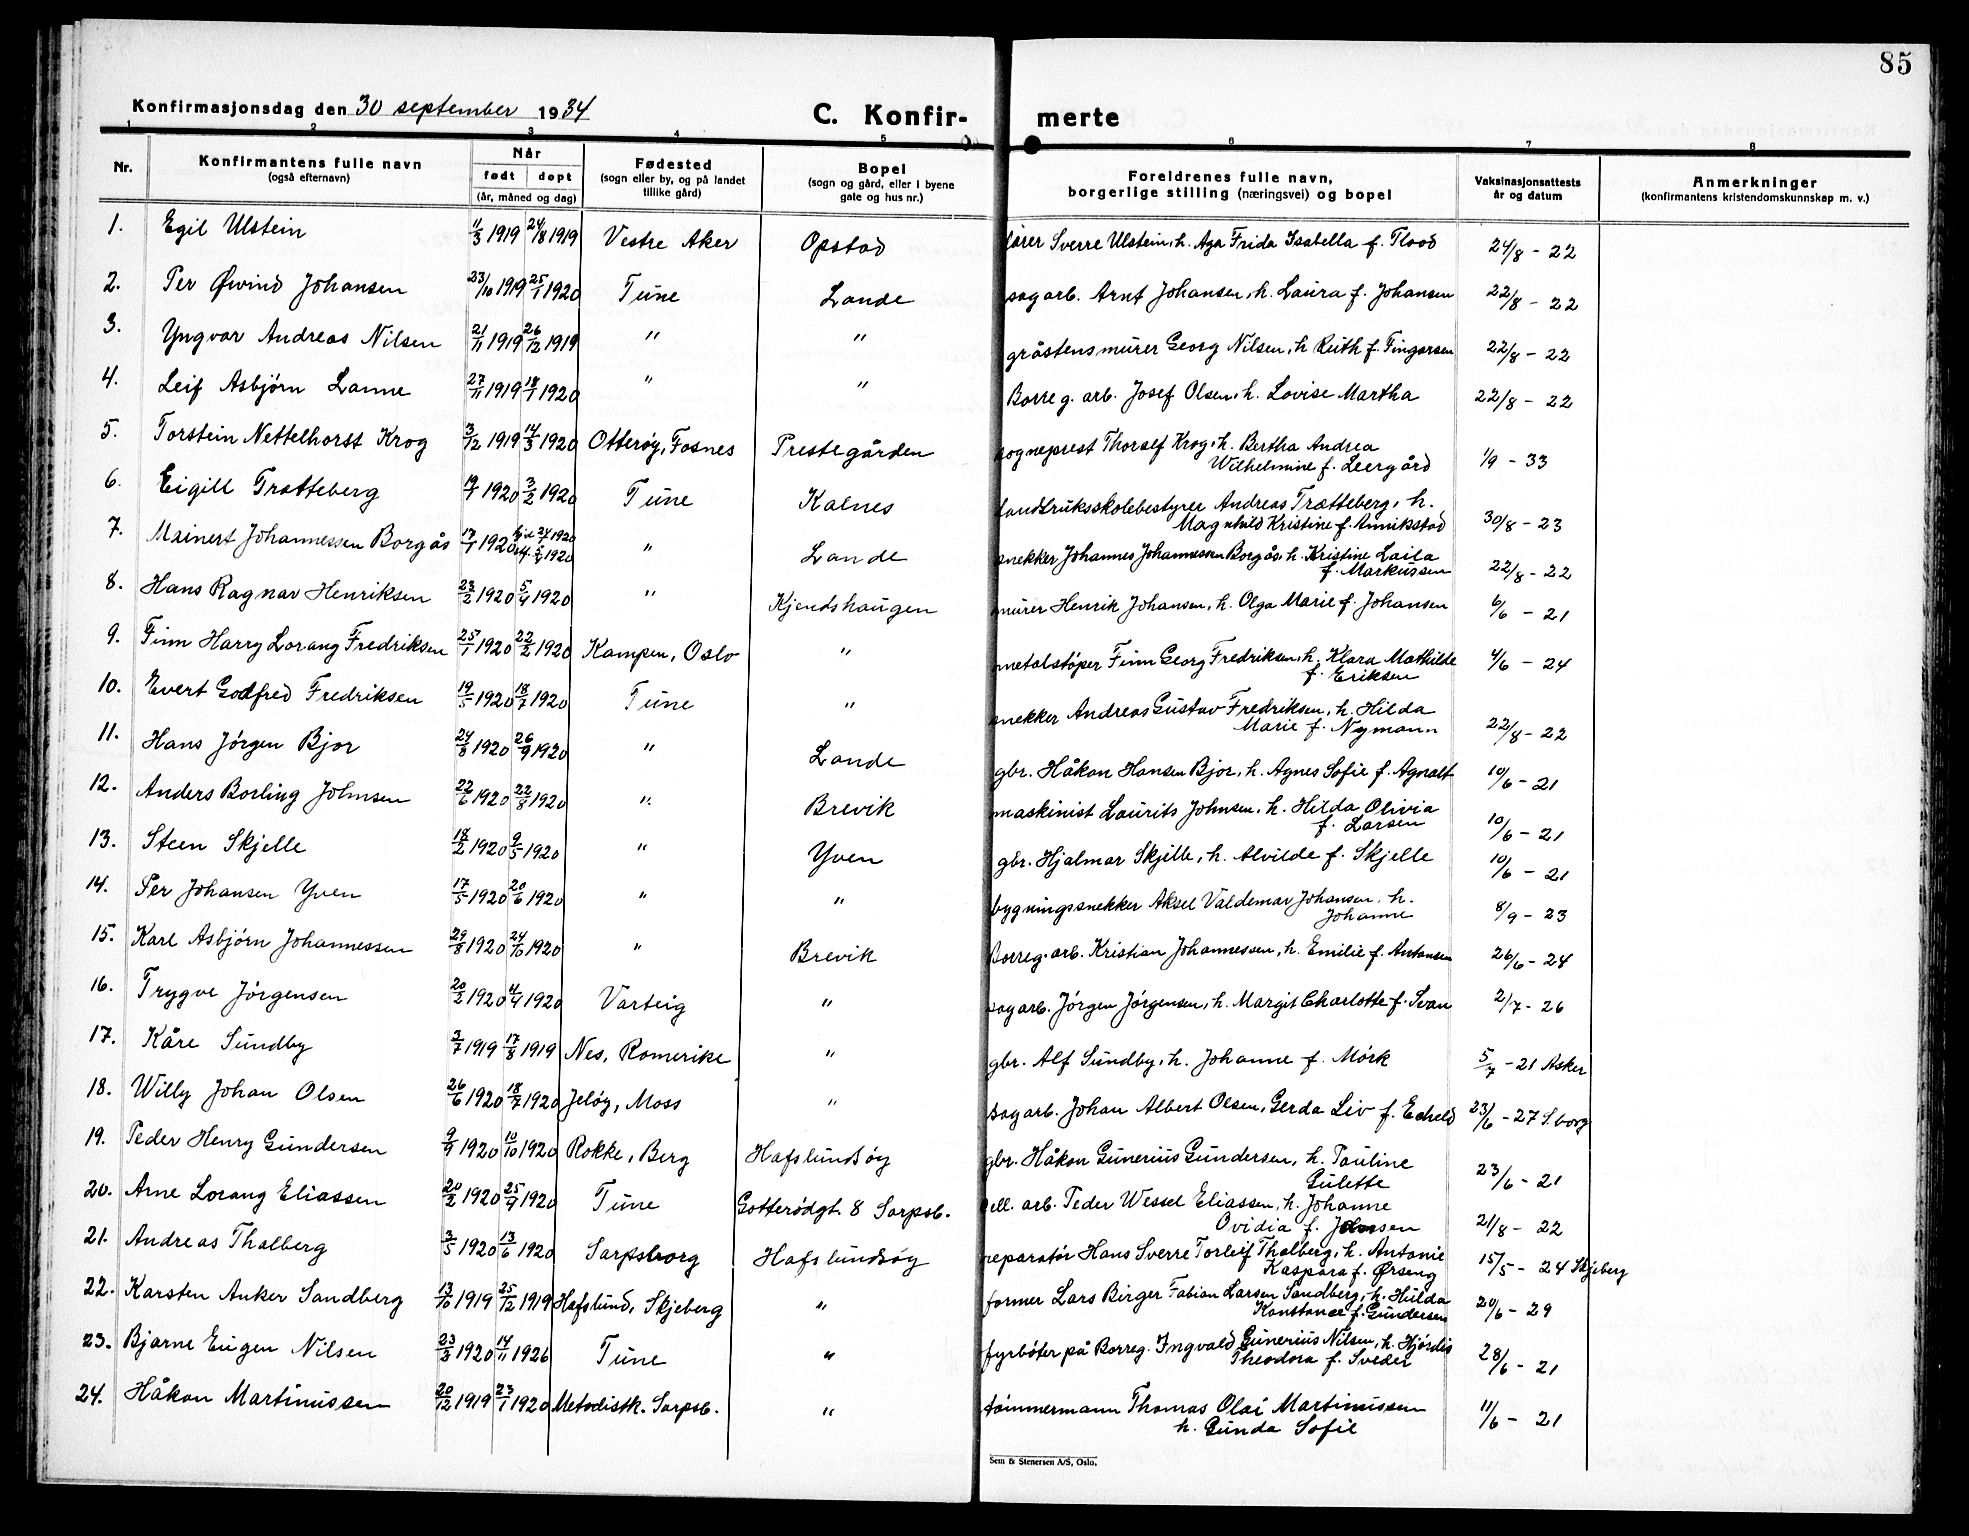 85
Konfirmasjonsdag den 30 september 1934
C. Konfir- merte
1 2 3 4 5 6 7 8
Nr. Konfirmantens fulle navn (også efternavn) Når født døpt (år, måned og dag) Fødested (sogn eller by, og på landet tillike gård) Bopel (sogn og gård, eller i byene gate og hus nr.) Foreldrenes fulle navn, borgerlige stilling (næringsvei) og bopel Vaksinasjonsattests år og datum Anmerkninger (konfirmantens kristendomskunnskap m. v.)
1. Egil Ulstein 11/3 1919 24/8 1919 Vestre Aker Opstad fører Sverre Ulstein, h. Aga Frida Isabella f. Flood 24/8 - 22
2. Per Øivind Johansen 23/10 1919 25/1 1920 Tune Lande sagarb. Arnt Johansen, h. Laura f. Johansen 22/8 - 22
3. Yngvar Andreas Nilsen 21/11 1919 26/12 1919 " " gråstensmurer Georg Nilsen, h. Ruth f. Fingarsen 22/8 - 22
4. Leif Asbjørn Lanne 27/11 1919 18/1 1920 " " Borreg. arb. Josef Olsen, h. Lovise Martha 22/8 - 22
5. Torstein Nettelhorst Krog 3/12 1919 14/3 1920 Otterøy, Fosnes Prestegården sogneprest Thoralf Krog, h. Bertha Andrea
Wilhelmine f. Leergård 1/9 - 33
6. Eigill Tratteberg 19/1 1920 3/2 1920 Tune Kalnes landbruksskolebestyrer Andreas Trætteberg, h.
Magnhild Kristine f. Annikstad 30/8 - 23
7. Meinert Johannessen Borgås 17/1 1920 1920 " Lande snekker Johannes Johannessen Borgås, h. Kristine Laila
f. Markussen 22/8 - 22
8. Hans Ragnar Henriksen 23/2 1920 5/4 1920 " Kjendshaugen murer Henrik Johansen, h. Olga Marie f. Johansen 6/6 - 21
9. Finn Harry Lorang Fredriksen 25/1 1920 22/2 1920 Kampen, Oslo " metalstøper Finn Georg Fredriksen, h. Klara Mathilde
f. Eriksen 4/6 - 24
10. Evert Godfred Fredriksen 19/5 1920 18/7 1920 Tune " snekker Andreas Gustav Fredriksen, h. Hilda
Marie f. Nymann 22/8 - 22
11. Hans Jørgen Bjor 24/8 1920 26/9 1920 " Lande gbr. Håkon Hansen Bjor, h. Agnes Sofie f. Agnalt 10/6 - 21
12. Anders Borling Johnsen 22/6 1920 22/8 1920 " Brevik maskinist Laurits Johnsen, h. Hilda Olivia
f. Larsen 10/6 - 21
13. Steen Skjelle 18/2 1920 9/5 1920 " Yven gbr. Hjalmar Skjelle, h. Alvilde f. Skjelle 10/6 - 21
14. Per Johansen Yven 17/5 1920 20/6 1920 " " bygningssnekker Aksel Valdemar Johansen, h.
Johanne 8/9 - 23
15. Karl Asbjørn Johannessen 29/8 1920 24/10 1920 " Brevik Borreg. arb. Kristian Johannessen, h. Emilie f. Antonsen 26/6 - 24
16. Trygve Jørgensen 20/2 1920 4/4 1920 Varteig " sagarb. Jørgen Jørgensen, h. Margit Charlotte f. Svan 2/7 - 26
17. Kåre Sundby 3/7 1919 17/8 1919 Nes, Romerike " gbr. Alf Sundby, h. Johanne f. Mørk 5/7 - 21 Asker
18. Willy Johan Olsen 26/6 1920 18/7 1920 Jeløy, Moss " sagarb. Johan Albert Olsen, Gerda Liv f. Edheld 23/6 - 27 S.borg
19. Peder Henry Gundersen 9/9 1920 10/10 1920 Rokke, Berg Hafslundsøy gbr. Håkon Gunerius Gundersen, h. Pauline
Gulette 23/6 - 21
20. Arne Lorang Eliassen 20/2 1920 25/4 1920 Tune Gotterødgt. 8 Sarpsb. cell. arb. Peder Wessel Eliassen, h. Johanne
Ovidia f. Johnsen 21/8 - 22
21. Andreas Thalberg 3/5 1920 13/6 1920 Sarpsborg Hafslundsøy reparatør Hans Sverre Torleif Thalberg, h. Antonie
Kaspara f. Ørseng 15/5 - 24 Skjeberg
22. Karsten Anker Sandberg 13/10 1919 25/12 1919 Hafslund, Skjeberg " former Lars Birger Fabian Larsen Sandberg, h. Hulda
Konstance f. Gundersen 20/6 - 29
23. Bjarne Eugen Nilsen 23/3 1920 14/11 1926 Tune " fyrbøter på Borreg. Ingvald Gunerius Nilsen, h. Hjørdis
Theodora f. Sveder 28/6 - 21
24. Håkon Martinussen 20/12 1919 23/1 1920 Metodistk. Sarpsb. " tømmermann Thomas Olai Martinussen
h. Gunda Sofie 11/6 - 21
Sem & Stenersen A/S, Oslo.